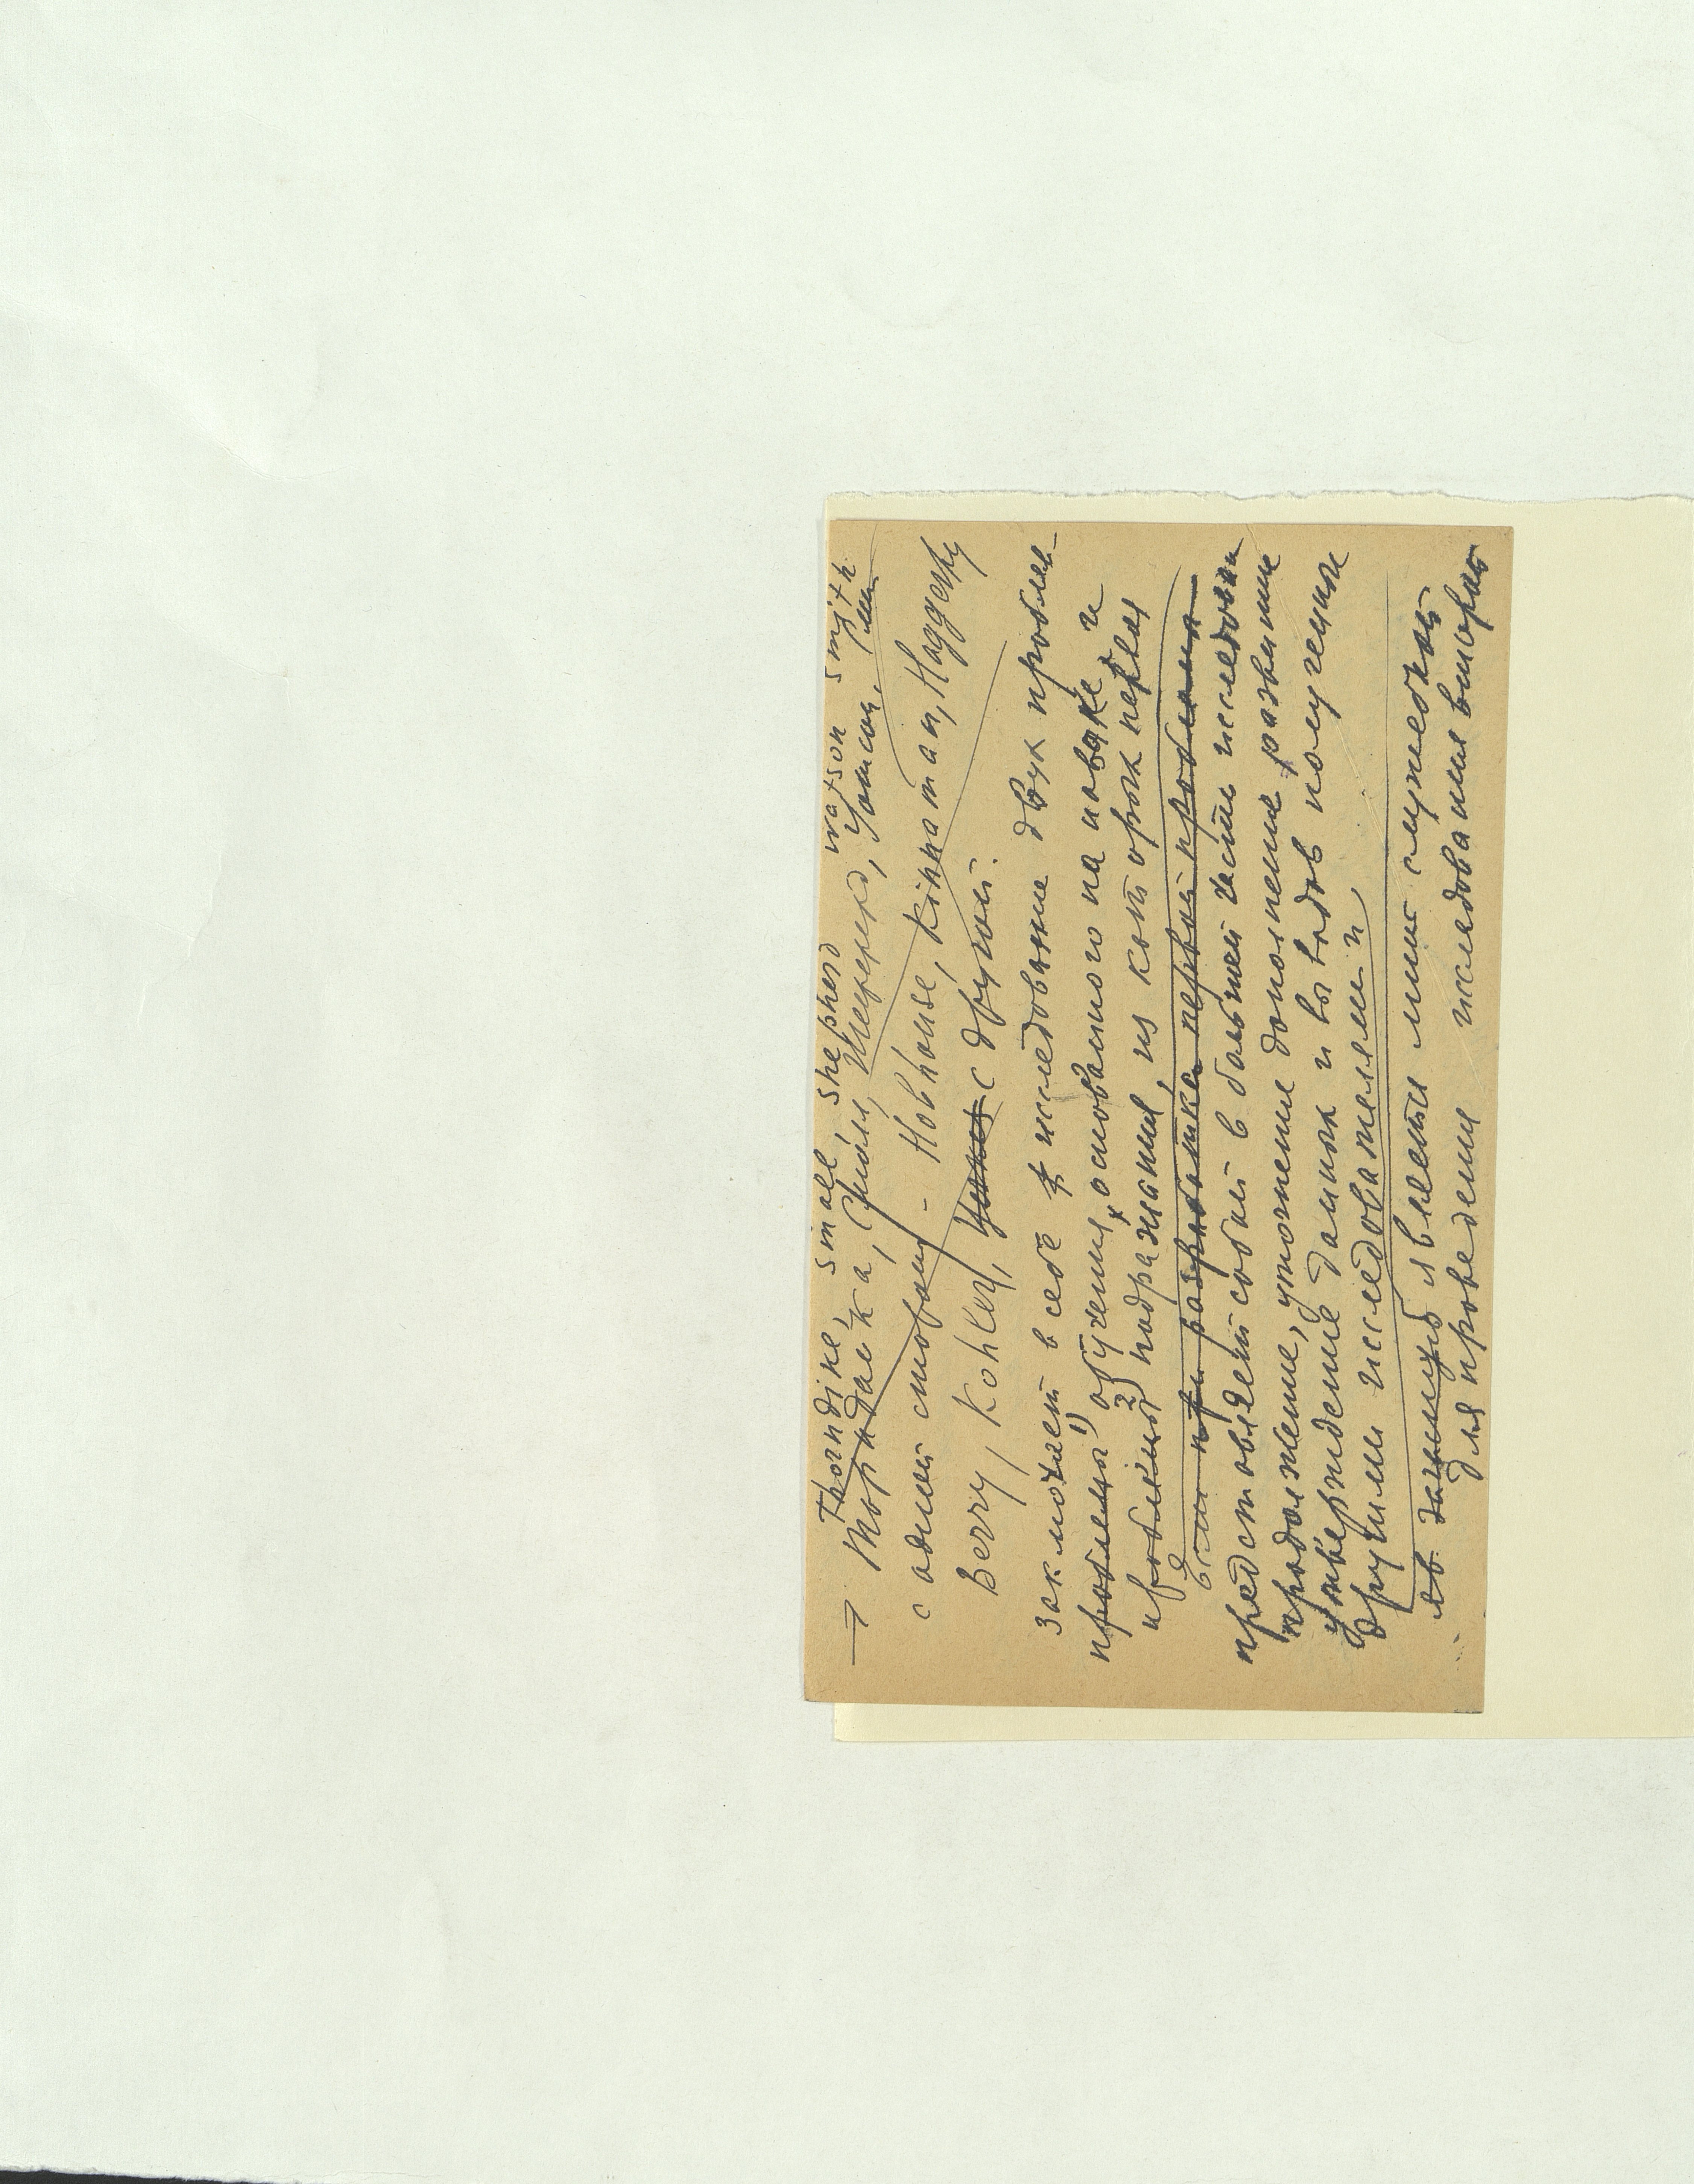 Thorndike, Small, Shephard Watson Smith
→ Торндайка, Смолл, Шеферд, Уотсон,
с одной стороны, - Hobhouse, Kinnaman, Haggerty
Berry, Kohler, с другой.
заключает в себе исследование двух проблем-
проблемы 1) обучения, основанного на навыке и
проблемы 2) подражания, из которых первая
Если при разработке первой проблемы
представляет собой в большей части исследован
продолжение, уточнение дополнение развитие
утверждение данных и выводов полученных
другими исследователями и
яв защищаю является лишь служебной
для проведения исследования второй